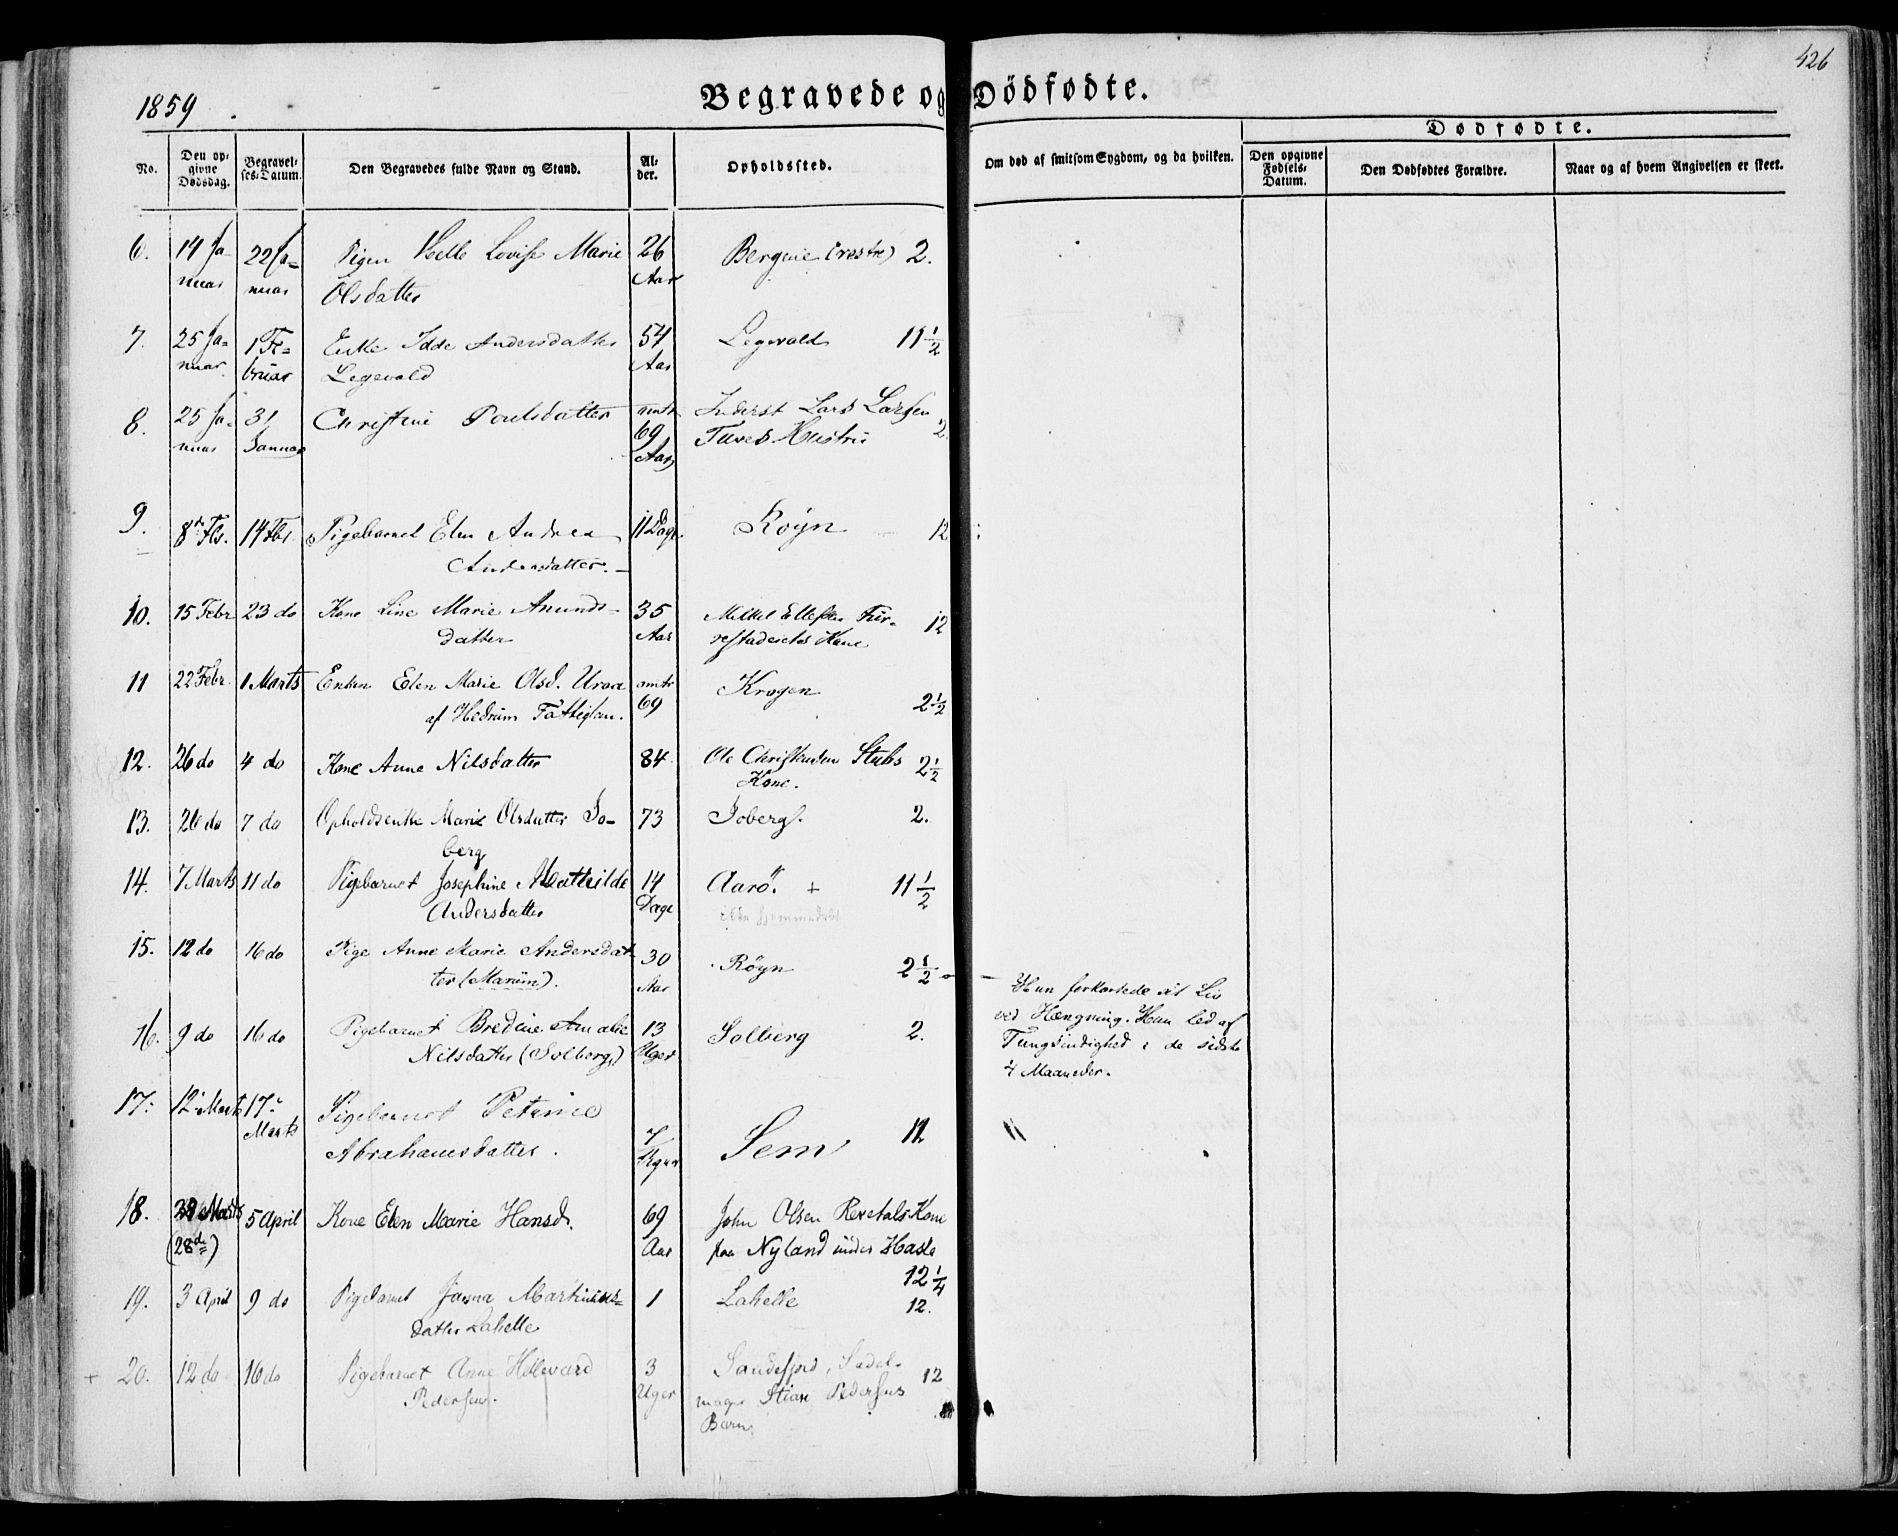 426
1859.
Begravede og Dödfødte.
Dødfødte.
No.
Den opgivne Dødsdag.
Begravelses-Datum.
Den Begravedes fulde Navn og Stand.
Alder.
Opholdssted.
Om død af smitsom Sygdom, og da hvilken.
Den opgivne Fødsels-Datum.
Den Dødfødtes Forældre.
Naar og af hvem Angivelsen er skeet.
6. 14 Ja- 22 Ja- Pigen Lovise Marie 26 Bergene (vestre) 2.
nuar nuar Olsdatter Aar
7. 25 Ja- 1 Fe- Enke Idde Andersdatter 54 Legevald 11 1/2
nuar. bruar Legevald Aar
8. 25 Ja- 31 Christine Poulsdatter omtr Inderst Lars Larsen 2
nuar Januar 69 Tuves Hustru
Aar
9. 8de Fbr. 14 Fbr. Pigebarnet Elen Andrea 11 Dage Röyn 12
Andersdatter.
10. 15 Febr 23 do Kone Line Marie Anunds- 35 Mikkel Ellefsen Fur- 12
datter Aar restadeiets Kone
11 22 Febr. 1 Marts Enken Elen Marie Olsd. Uraa omtr Krogen 2 1/2
af Hedrum Fattiglem. 69
12. 26 do 4 do Kone Anne Nilsdatter 84 Ole Christensen Stubs 2 1/2
Kone.
13. 26 do 7 do Opholdsenke Marie Olsdatter Jo- 73 Joberg. 2.
berg
14. 7 Marts 11 do Pigebarnet Josephine Mathilde 14 Aarö. + 11 1/2
Andersdatter Dage
15. 12 do 16 do Pige Anne Marie Andersdat- 30 Röyn 2 1/2
ter (Marum). Aar
Hun forkortede sit Liv
ved Hængning. Hun led af
Tungsindighed i de sidste
4 Maaneder.
16. 9 do 16 do Pigebarnet Bredine Amalie 13 Solberg 2.
Nilsdatter (Solberg) Uger
17. 12 Marts 17. Pigebarnet Petrine 7 Sem 12 "
Marts Abrahamsdatter.
18. Marts 5 April Kone Elen Marie Hansd. 69 John Olsen Revetals Kone
(28de) Aar paa Nyland under Hasle
12 1/4
19. 3 April 9 do Pigebarnet Janna Martinius- 1 Lahelle 12.
datter Lahelle
+ 20. 12 do 16 do Pigebarnet Anne Hellevard 3 Sandefjord, Sadel- 12
Pedersen. Uger mager Stian Pedersens
Barn.